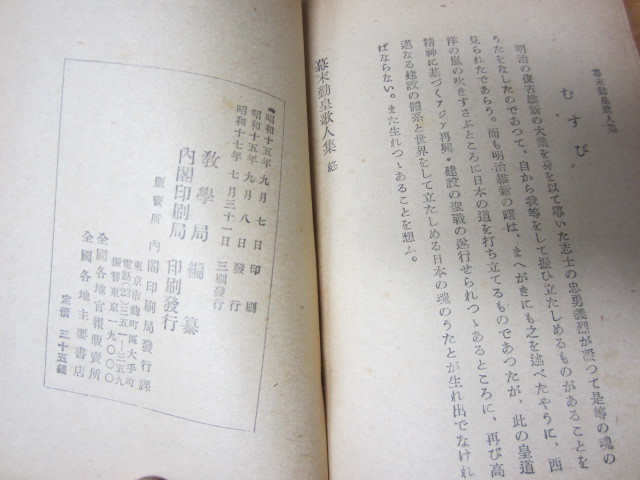 幕末勤皇歌人集
むすび
明治の復古維新の大業を身を以て導いた志士の忠勇義烈が凝つて是等の魂の
うたをなしたのであつて、自から我等をして振ひ立たしめるものがあることを
見られたであらう。而も明治維新の曙は、まへがきにも之を述べたやうに、西
洋の嵐の吹きすさぶところに日本の道を打ち立てるものであつたが、此の皇道
精神に基づくアジア再興・建設の聖戰の遂行せられつゝあるところに、再び高
邁なる建設の體系と世界をして立たしめる日本の魂のうたとが生れ出でなけれ
ばならない。また生れつゝあることを想ふ。
幕末勤皇歌人集 終
昭和十五年九月七日印刷
昭和十五年九月八日發行
昭和十七年七月三十一日三刷發行
敎學局編纂
內閣印刷局印刷發行
販賣所 內閣印刷局發行課
東京市麴町區大手町
電話(23)三五一―三五九
振替東京一九〇〇〇
全國各地官報販賣所
全國各地主要書店
定價 三十五錢